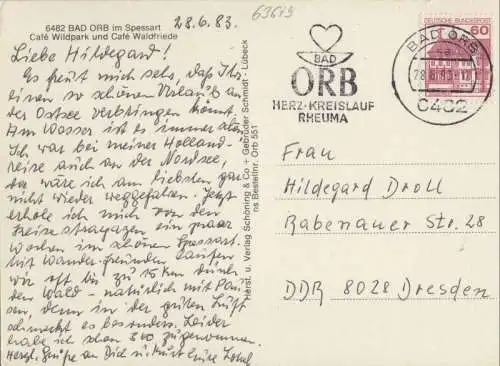 6482 BAD ORB im Spessart
Café Wildpark und Café Waldfriede
28.6.83.
63649
Liebe Hildegard!
Es freut mich sehr, daß Ihr
einen so schönen Urlaub an
der Ostsee verbringen könnt.
Am Wasser ist es immer schön.
Ich war bei meiner Holland-
reise auch an der Nordsee,
da wäre ich am liebsten gar
nicht wieder weggefahren. Jetzt
erhole ich mich von den
Reisestrapazen ein paar
Wochen im schönen Spessart.
Mit Wanderfreunden laufen
wir oft bis zu 15 km durch
den Wald - natürlich mit Pau-
sen, denn in der guten Luft
schmeckt es besonders. Leider
habe ich schon zugenommen.
Herzl. Grüße an Dich u. Kurt Eure
Herst. u. Verlag Schöning & Co + Gebrüder Schmidt · Lübeck
ns Bestellnr. Orb 551
BAD
ORB
HERZ-KREISLAUF
RHEUMA
DEUTSCHE BUNDESPOST
60
BAD ORB
28.6.83-12
6482
Frau
Hildegard Droll
Rabenauer Str. 28
DDR 8028 Dresden